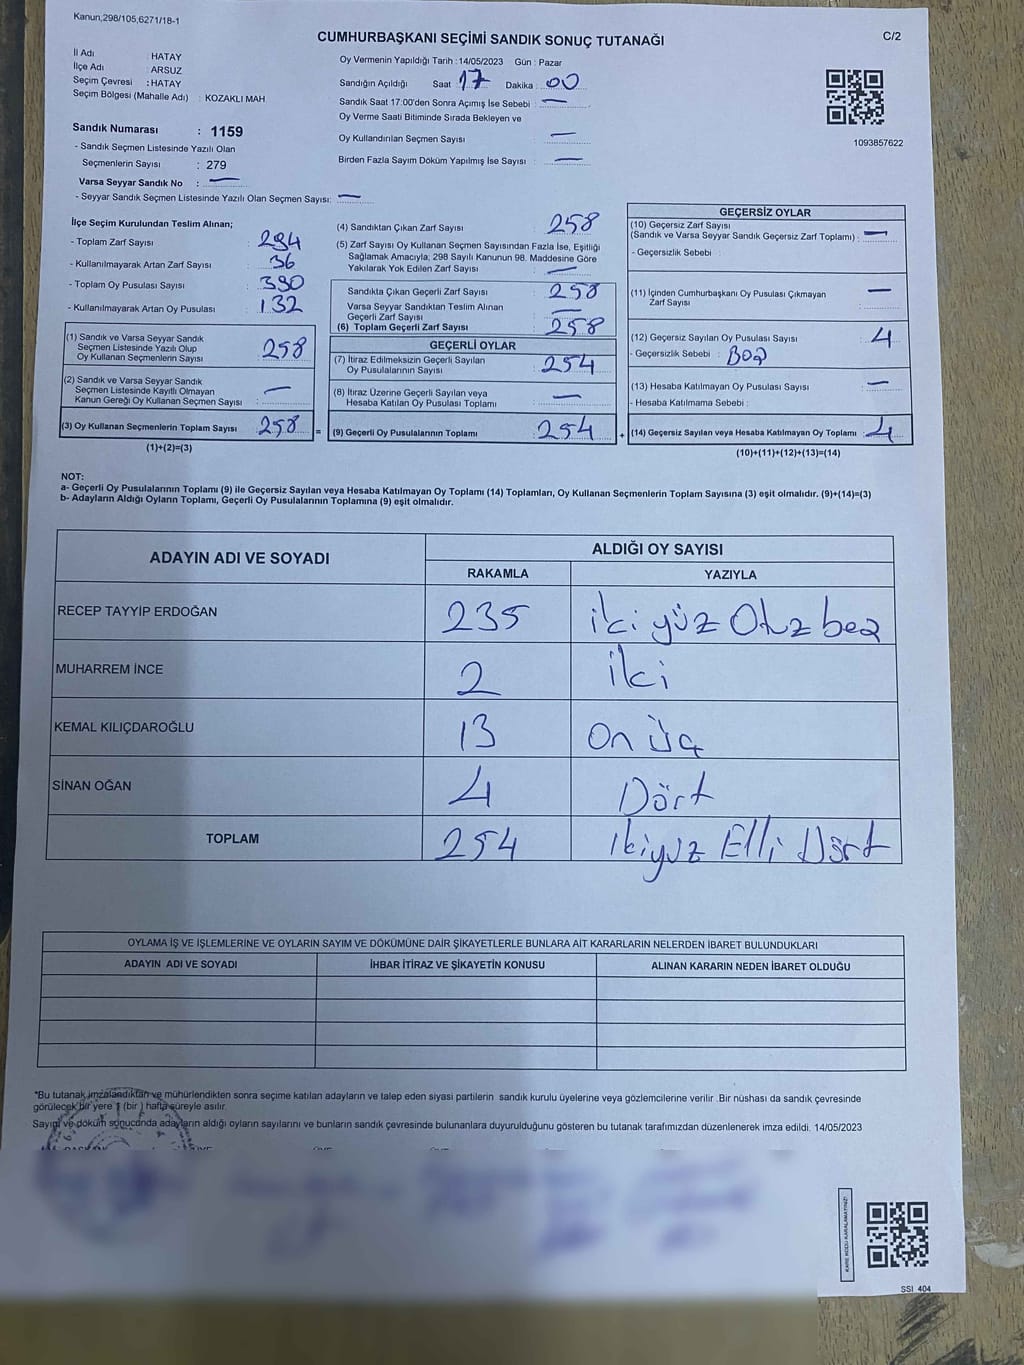 Kanun,298/105,6271/18-1
C/2
CUMHURBAŞKANI SEÇİMİ SANDIK SONUÇ TUTANAĞI
İl Adı : HATAY
İlçe Adı : ARSUZ
Seçim Çevresi : HATAY
Seçim Bölgesi (Mahalle Adı) : KOZAKLI MAH
Sandık Numarası : 1159
- Sandık Seçmen Listesinde Yazılı Olan
Seçmenlerin Sayısı : 279
Varsa Seyyar Sandık No : —
- Seyyar Sandık Seçmen Listesinde Yazılı Olan Seçmen Sayısı: —
Oy Vermenin Yapıldığı Tarih :14/05/2023 Gün : Pazar
Sandığın Açıldığı Saat 17 Dakika : 00
Sandık Saat 17:00'den Sonra Açımış İse Sebebi : —
Oy Verme Saati Bitiminde Sırada Bekleyen ve
Oy Kullandırılan Seçmen Sayısı : —
Birden Fazla Sayım Döküm Yapılmış İse Sayısı : —
1093857622
İlçe Seçim Kurulundan Teslim Alınan;
- Toplam Zarf Sayısı : 294
- Kullanılmayarak Artan Zarf Sayısı : 36
- Toplam Oy Pusulası Sayısı : 390
- Kullanılmayarak Artan Oy Pusulası : 132
(1) Sandık ve Varsa Seyyar Sandık
Seçmen Listesinde Yazılı Olup
Oy Kullanan Seçmenlerin Sayısı : 258
(2) Sandık ve Varsa Seyyar Sandık
Seçmen Listesinde Kayıtlı Olmayan
Kanun Gereği Oy Kullanan Seçmen Sayısı : —
(3) Oy Kullanan Seçmenlerin Toplam Sayısı : 258
(1)+(2)=(3)
(4) Sandıktan Çıkan Zarf Sayısı : 258
(5) Zarf Sayısı Oy Kullanan Seçmen Sayısından Fazla İse, Eşitliği
Sağlamak Amacıyla; 298 Sayılı Kanunun 98. Maddesine Göre
Yakılarak Yok Edilen Zarf Sayısı : —
Sandıkta Çıkan Geçerli Zarf Sayısı : 258
Varsa Seyyar Sandıktan Teslim Alınan
Geçerli Zarf Sayısı : —
(6) Toplam Geçerli Zarf Sayısı : 258
GEÇERLİ OYLAR
(7) İtiraz Edilmeksizin Geçerli Sayılan
Oy Pusulalarının Sayısı : 254
(8) İtiraz Üzerine Geçerli Sayılan veya
Hesaba Katılan Oy Pusulası Toplamı : —
= (9) Geçerli Oy Pusulalarının Toplamı : 254
GEÇERSİZ OYLAR
(10) Geçersiz Zarf Sayısı
(Sandık ve Varsa Seyyar Sandık Geçersiz Zarf Toplamı) : —
- Geçersizlik Sebebi :
(11) İçinden Cumhurbaşkanı Oy Pusulası Çıkmayan
Zarf Sayısı : —
(12) Geçersiz Sayılan Oy Pusulası Sayısı : 4
- Geçersizlik Sebebi : Boş
(13) Hesaba Katılmayan Oy Pusulası Sayısı : —
- Hesaba Katılmama Sebebi :
+ (14) Geçersiz Sayılan veya Hesaba Katılmayan Oy Toplamı : 4
(10)+(11)+(12)+(13)=(14)
NOT:
a- Geçerli Oy Pusulalarının Toplamı (9) ile Geçersiz Sayılan veya Hesaba Katılmayan Oy Toplamı (14) Toplamları, Oy Kullanan Seçmenlerin Toplam Sayısına (3) eşit olmalıdır. (9)+(14)=(3)
b- Adayların Aldığı Oyların Toplamı, Geçerli Oy Pusulalarının Toplamına (9) eşit olmalıdır.
ADAYIN ADI VE SOYADI ALDIĞI OY SAYISI
RAKAMLA YAZIYLA
RECEP TAYYİP ERDOĞAN 235 iki yüz Otuz beş
MUHARREM İNCE 2 iki
KEMAL KILIÇDAROĞLU 13 On üç
SİNAN OĞAN 4 Dört
TOPLAM 254 ikiyüz Elli Dört
OYLAMA İŞ VE İŞLEMLERİNE VE OYLARIN SAYIM VE DÖKÜMÜNE DAİR ŞİKAYETLERLE BUNLARA AİT KARARLARIN NELERDEN İBARET BULUNDUKLARI
ADAYIN ADI VE SOYADI İHBAR İTİRAZ VE ŞİKAYETİN KONUSU ALINAN KARARIN NEDEN İBARET OLDUĞU
*Bu tutanak,imzalandıktan ve mühürlendikten sonra seçime katılan adayların ve talep eden siyasi partilerin sandık kurulu üyelerine veya gözlemcilerine verilir .Bir nüshası da sandık çevresinde
görülecek bir yere 1 (bir ) hafta süreyle asılır.
Sayım ve döküm sonucunda adayların aldığı oyların sayılarını ve bunların sandık çevresinde bulunanlara duyurulduğunu gösteren bu tutanak tarafımızdan düzenlenerek imza edildi. 14/05/2023
KARE KODU KARALAMAYINIZ!
SSI 404